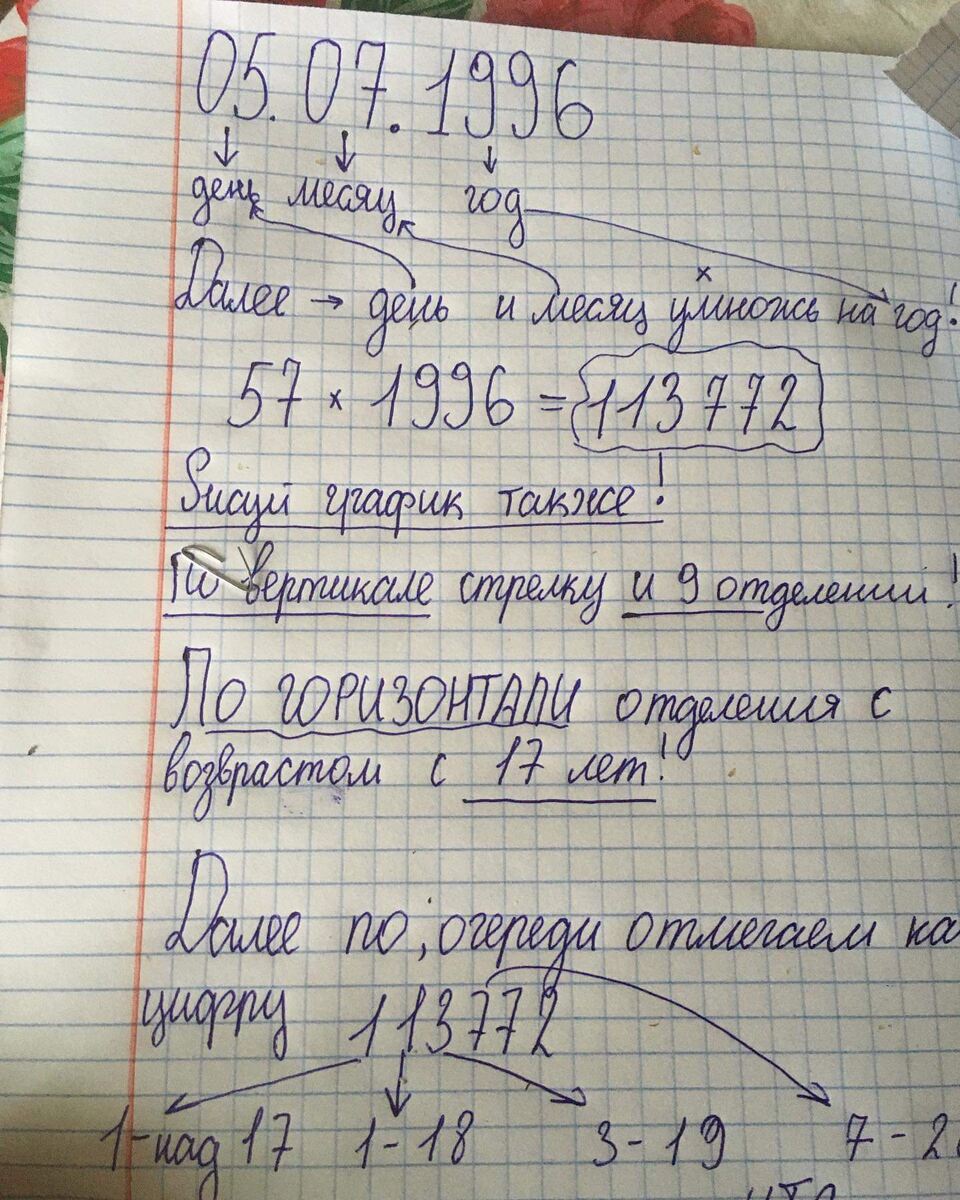 05.07.1996
день месяц год
Далее → день и месяц умножь на год!
x
57 x 1996 = 113772
Рисуй график также!
По вертикале стрелку и 9 отделений!
По ГОРИЗОНТАЛИ отделения с
возврастом с 17 лет!
Далее по, очереди отмегаем
цифру 113772
1-над 17 1-18 3-19 7-2